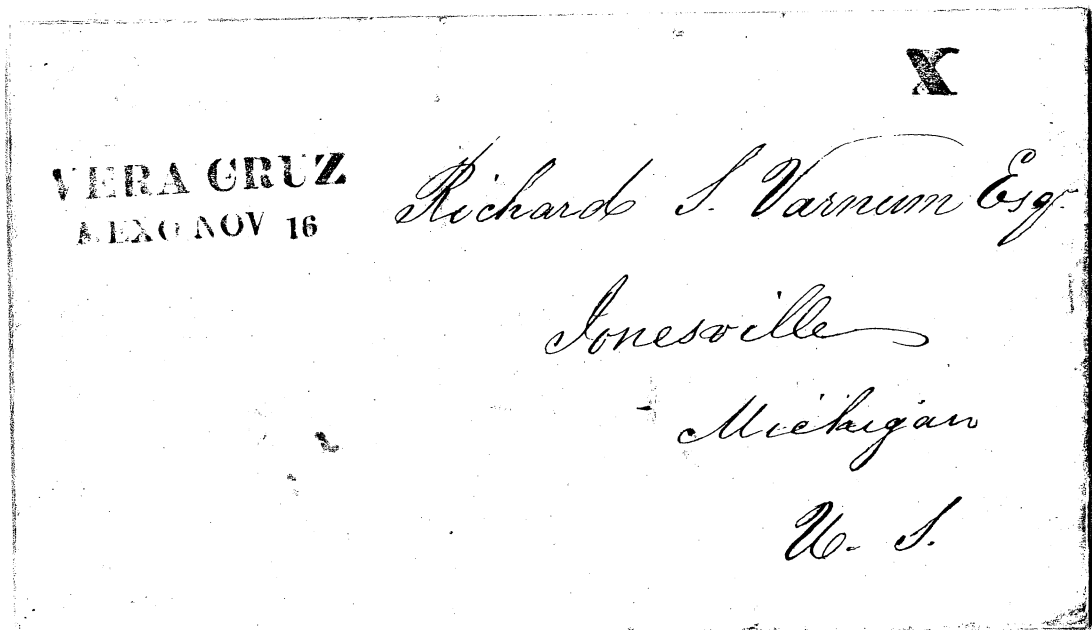 X
VERA CRUZ
MEXO NOV 16
Richard S. Varnum Esqr.
Jonesville
Michigan
U. S.